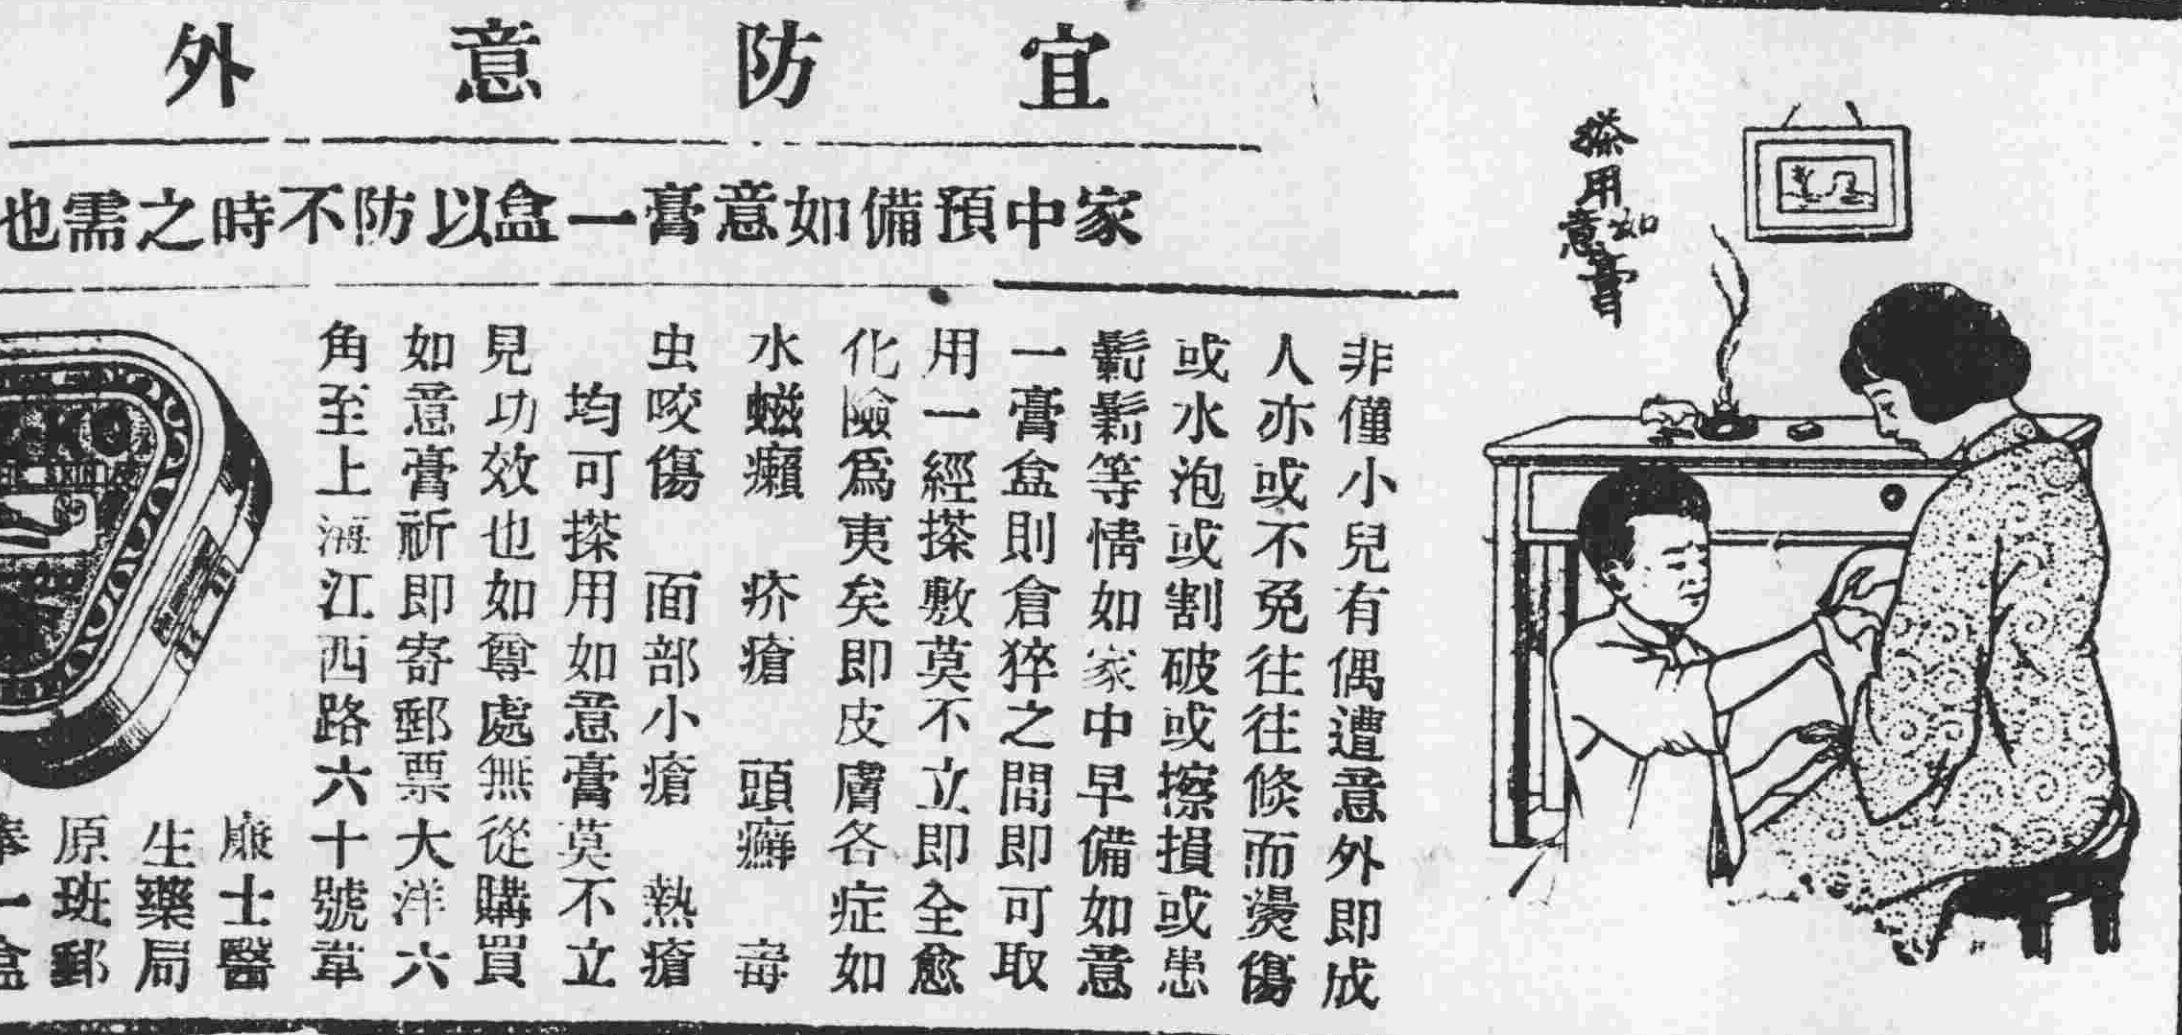 宜防意外
家中預備如意膏一盒以防不時之需也
搽用如意膏
非僅小兒有偶遭意外即成
人亦或不免往往倏而燙傷
或水泡或割破或擦損或患
等情如家中早備如意
一膏盒則倉猝之間即可取
用一經搽敷莫不立即全愈
化險爲夷矣即皮膚各症如
水蠟癩 疥瘡 頭癬 毒
虫咬傷 面部小瘡 熱瘡
均可搽用如意膏莫不立
見功效也如尊處無從購買
如意膏祈即寄郵票大洋六
角至上海江西路六十號韋
廉士醫
生藥局
原班郵
奉一盒